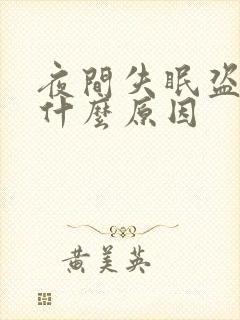 夜間失眠盜
什麼原因
黃美英